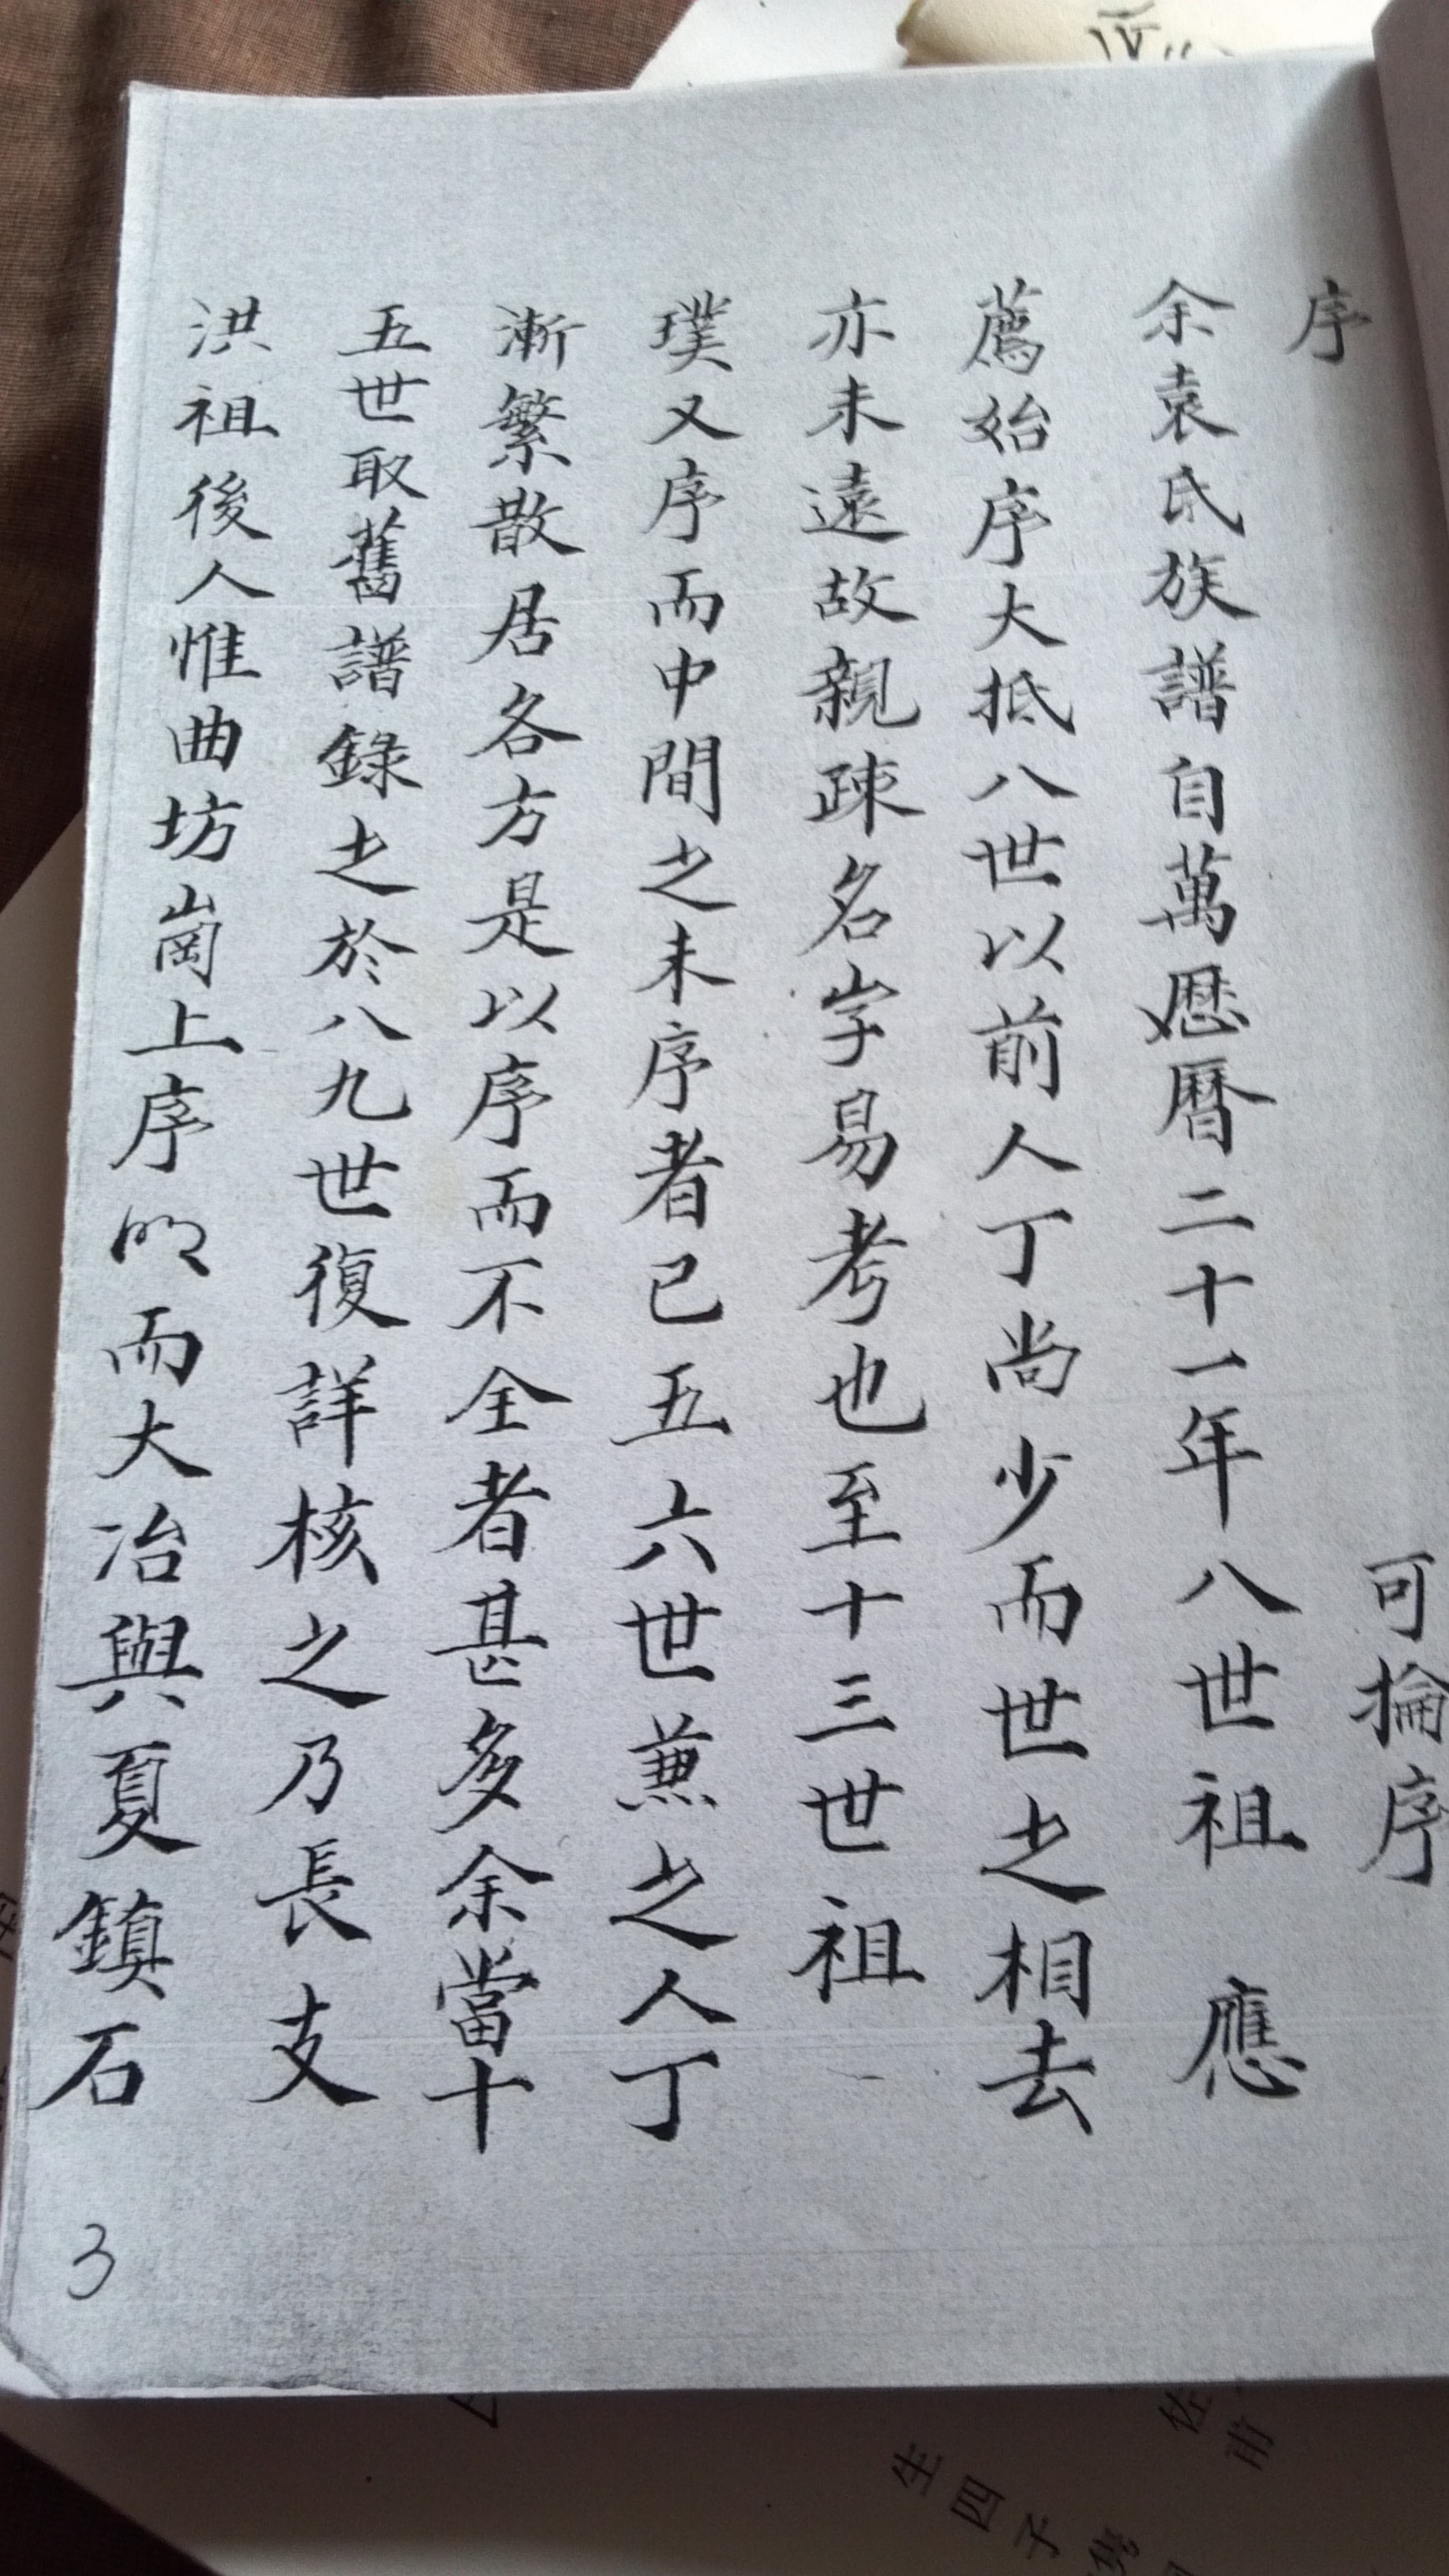 可掄序
序
余袁氏族譜自萬歷曆二十一年八世祖 應
薦始序大抵八世以前人丁尚少而世之相去
亦未遠故親疎名字易考也至十三世祖
璞又序而中間之未序者已五六世蕪之人丁
漸繁散居各方是以序而不全者甚多余當十
五世取舊譜錄之於八九世復詳核之乃長支
洪祖後人惟曲坊崗上序明而大冶與夏鎮石
3
生四子